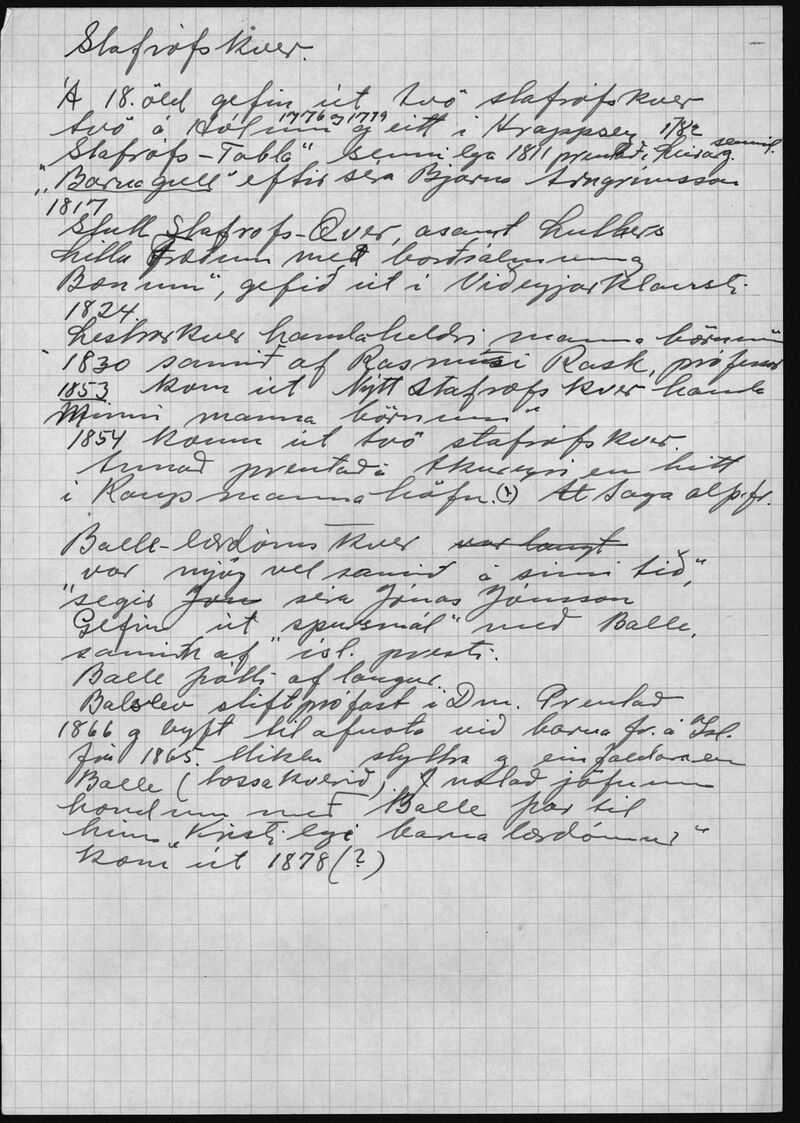 Stafrófskver.
Á 18. öld gefin út tvö stafrófskver
1776 og 1779
tvö á Hólum og eitt í Hrappsey 1782
Stafrófs-Tabla" sennilega 1811 prentað í Leirárg. sennil.
"Barnagull" eftir séra Bjarna Arngrímsson
1817
Stutt Stafrofs-Qver, ásamt Luthers
litlu Fræðum með borðsálmum og
Bænum", gefið út í Viðeyjarklaustri
1824.
Lestrarkver handa heldri manna börnum"
1830 samið af Rasmusi Rask, prófessor
1853 kom út Nýtt stafrófskver handa
Minni manna börnum"
1854 komu út tvö stafrófskver.
Annað prentað á Akureyri en hitt
í Kaupmannahöfn. (?) Saga alþ.fr.
Balle-lærdómskver var langt
"var mjög vel samið á sinni tíð",
segir Jón séra Jónas Jónsson
Gefin út "spursmál" með Balle,
samin af ísl. presti.
Balle þótti of langur.
Balslev stiftprófast í Dm. Prentað
1866 og leyft til afnota við barnafr. á Ísl.
frá 1865. Miklu styttra og einfaldara en
Balle (tossakverið). Notað jöfnum
höndum með Balle þar til
hinn "Kristilegi barnalærdómur"
kom út 1878 (?)